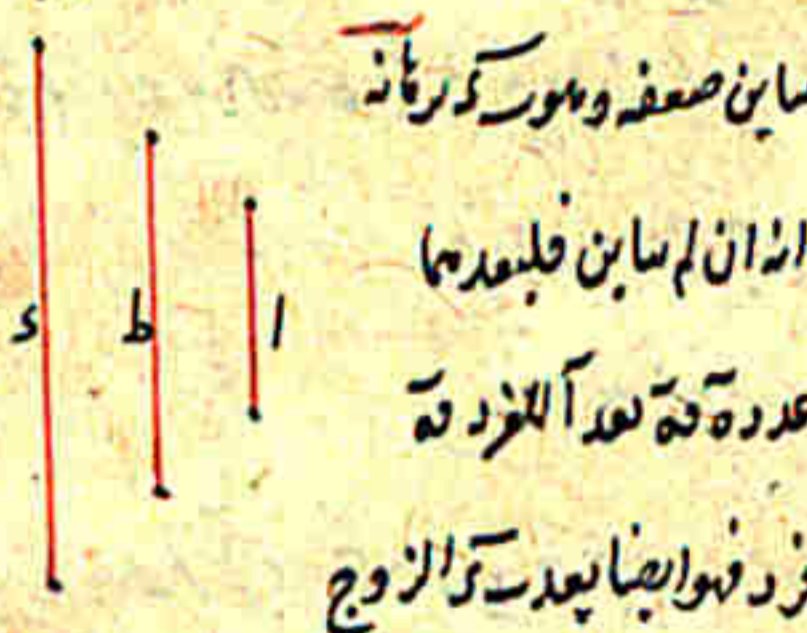 يباين ضعفه وهو برهانه
انه ان لم يباين فليعدهما
عدد ه فه يعد آ الفرد فه
فرد فهو ايضا يعد الزوج
ا